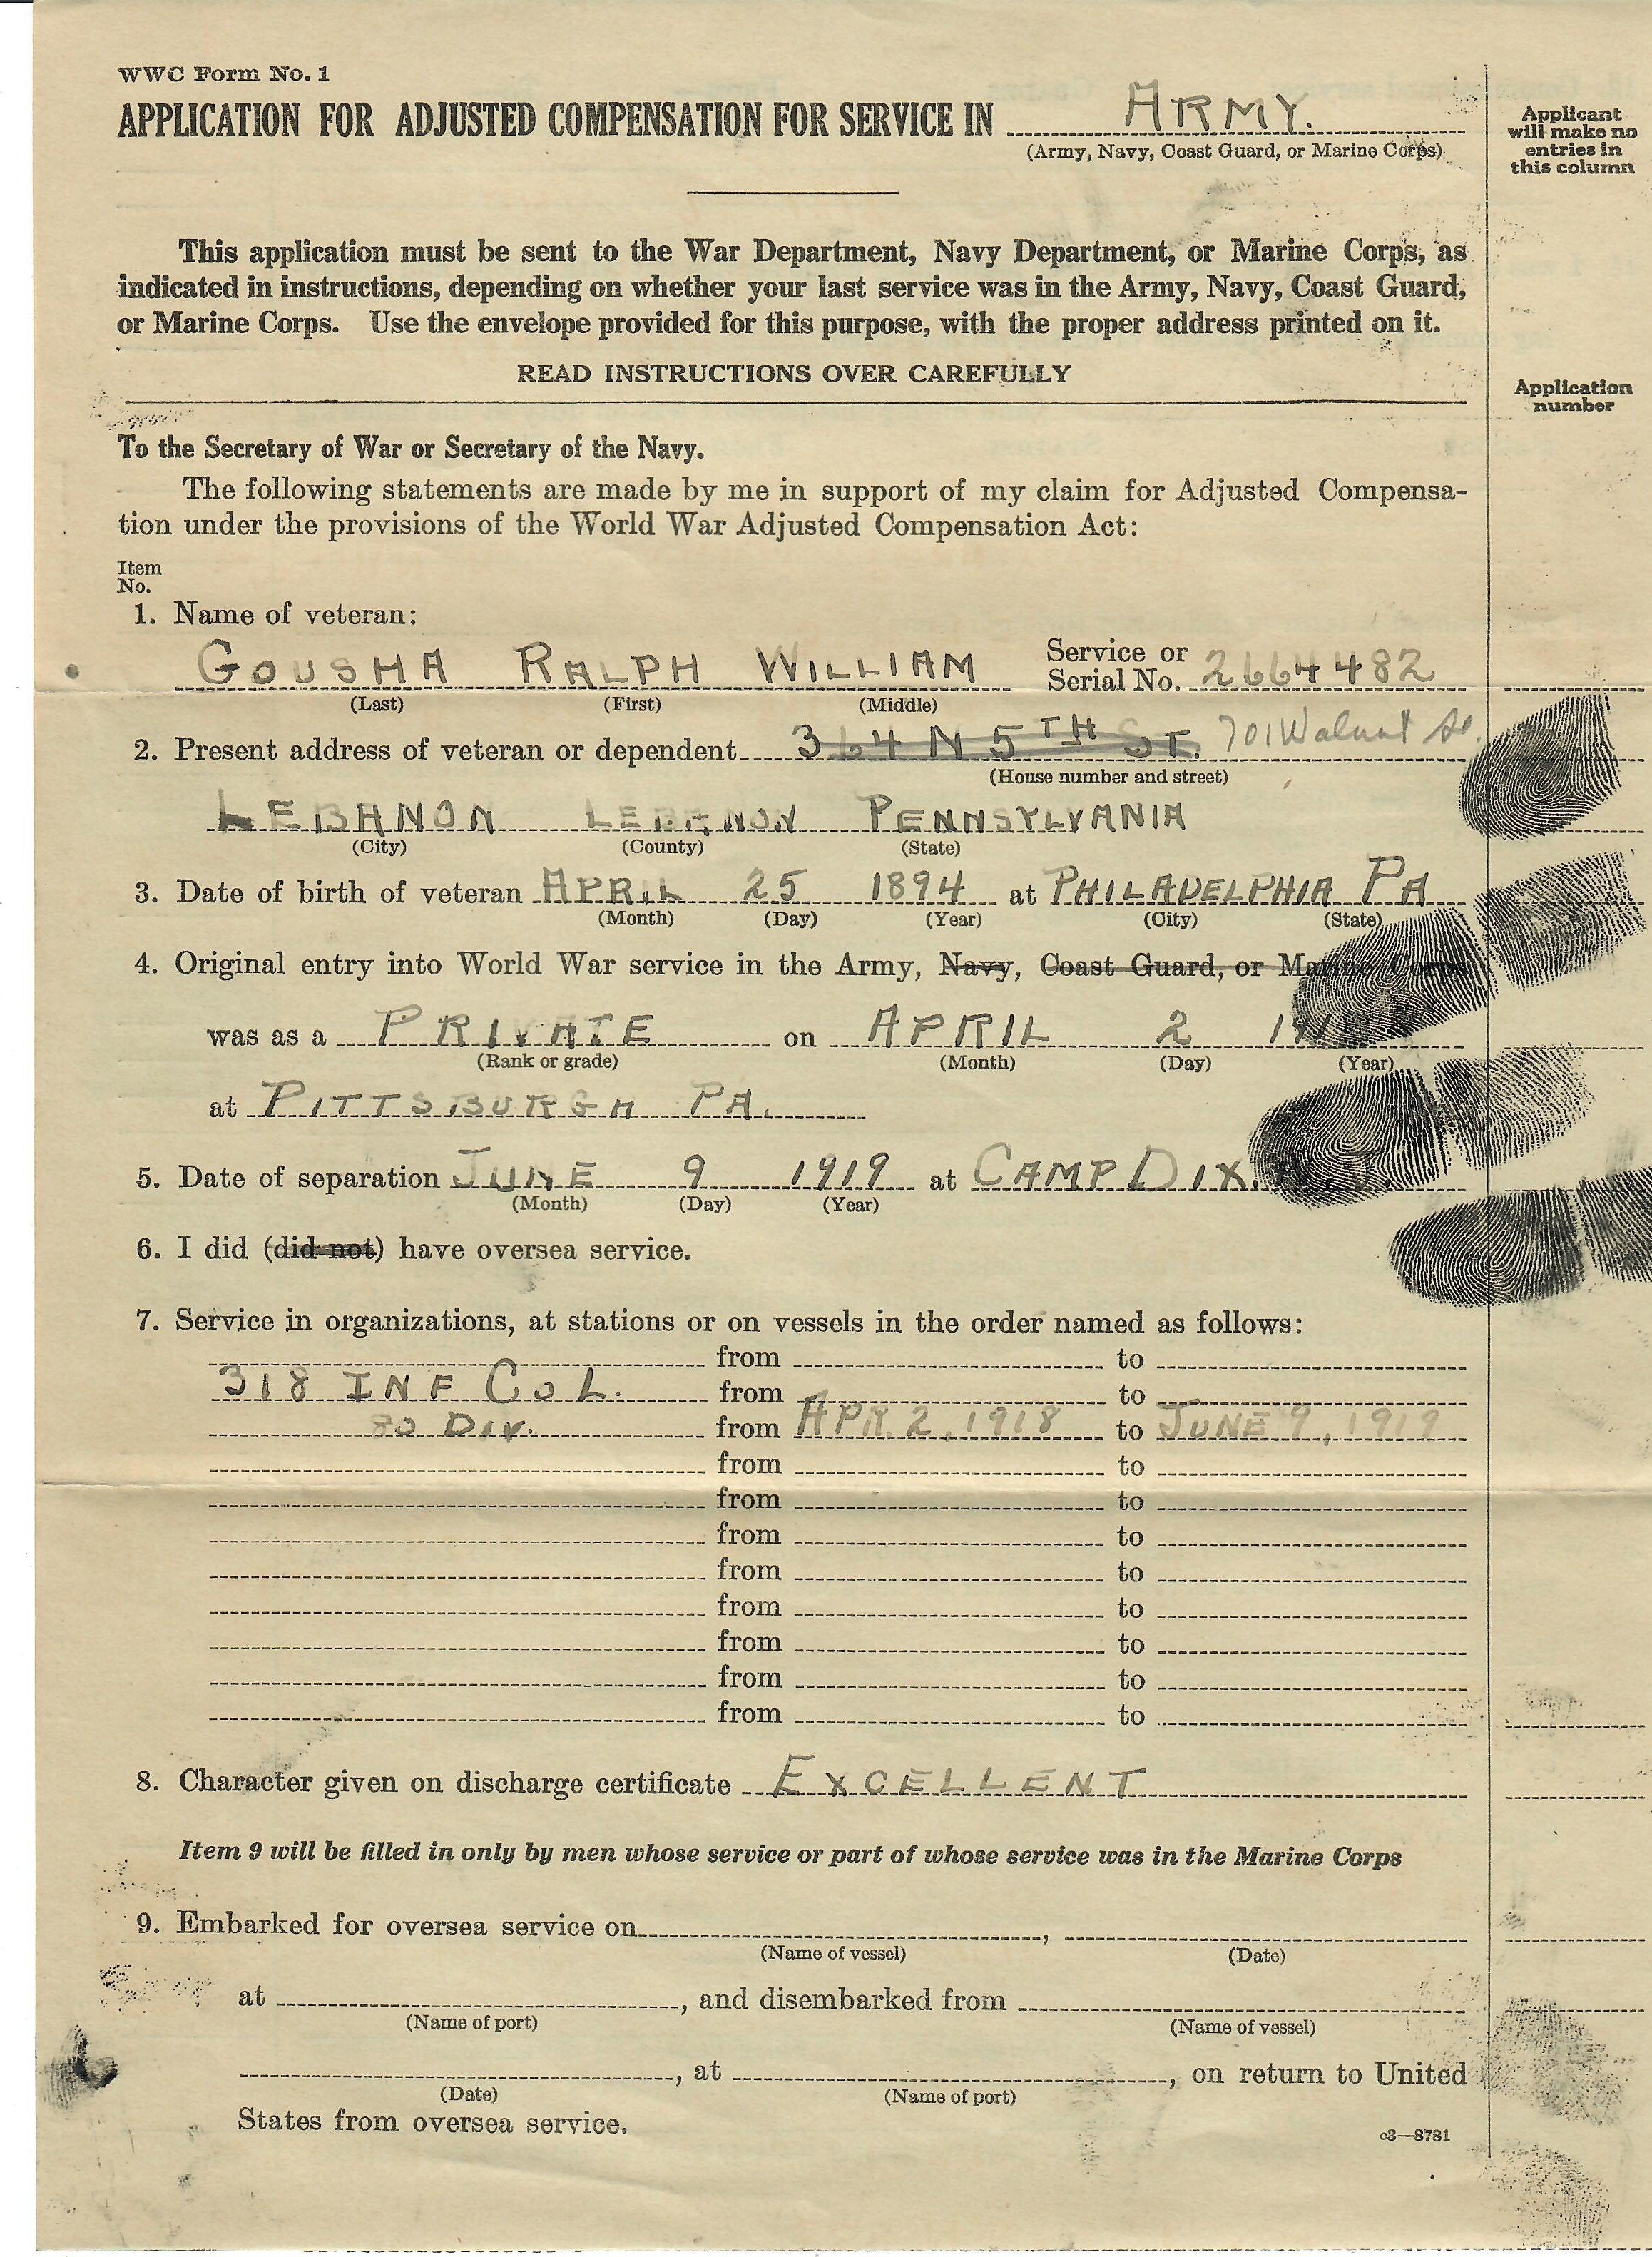 WWC Form No. 1
APPLICATION FOR ADJUSTED COMPENSATION FOR SERVICE IN ARMY.
(Army, Navy, Coast Guard, or Marine Corps)
Applicant
will make no
entries in
this column
This application must be sent to the War Department, Navy Department, or Marine Corps, as
indicated in instructions, depending on whether your last service was in the Army, Navy, Coast Guard,
or Marine Corps. Use the envelope provided for this purpose, with the proper address printed on it.
READ INSTRUCTIONS OVER CAREFULLY
Application
number
To the Secretary of War or Secretary of the Navy.
The following statements are made by me in support of my claim for Adjusted Compensa-
tion under the provisions of the World War Adjusted Compensation Act:
Item
No.
1. Name of veteran:
GOUSHA RALPH WILLIAM Service or
Serial No. 2664482
(Last) (First) (Middle)
2. Present address of veteran or dependent 364 N 5TH ST. 701 Walnut St.
(House number and street)
LEBANON LEBANON PENNSYLVANIA
(City) (County) (State)
3. Date of birth of veteran APRIL 25 1894 at PHILADELPHIA PA
(Month) (Day) (Year) (City) (State)
4. Original entry into World War service in the Army, Navy, Coast Guard, or Marine Corps
was as a PRIVATE on APRIL 2 191
(Rank or grade) (Month) (Day) (Year)
at PITTSBURGH PA.
5. Date of separation JUNE 9 1919 at CAMP DIX. N.J.
(Month) (Day) (Year)
6. I did (did not) have oversea service.
7. Service in organizations, at stations or on vessels in the order named as follows:
from to
318 INF CO L. from to
80 DIV. from APR. 2, 1918 to JUNE 9, 1919
from to
from to
from to
from to
from to
from to
from to
from to
8. Character given on discharge certificate EXCELLENT
Item 9 will be filled in only by men whose service or part of whose service was in the Marine Corps
9. Embarked for oversea service on ,
(Name of vessel) (Date)
at , and disembarked from
(Name of port) (Name of vessel)
, at , on return to United
(Date) (Name of port)
States from oversea service.
c3—8781